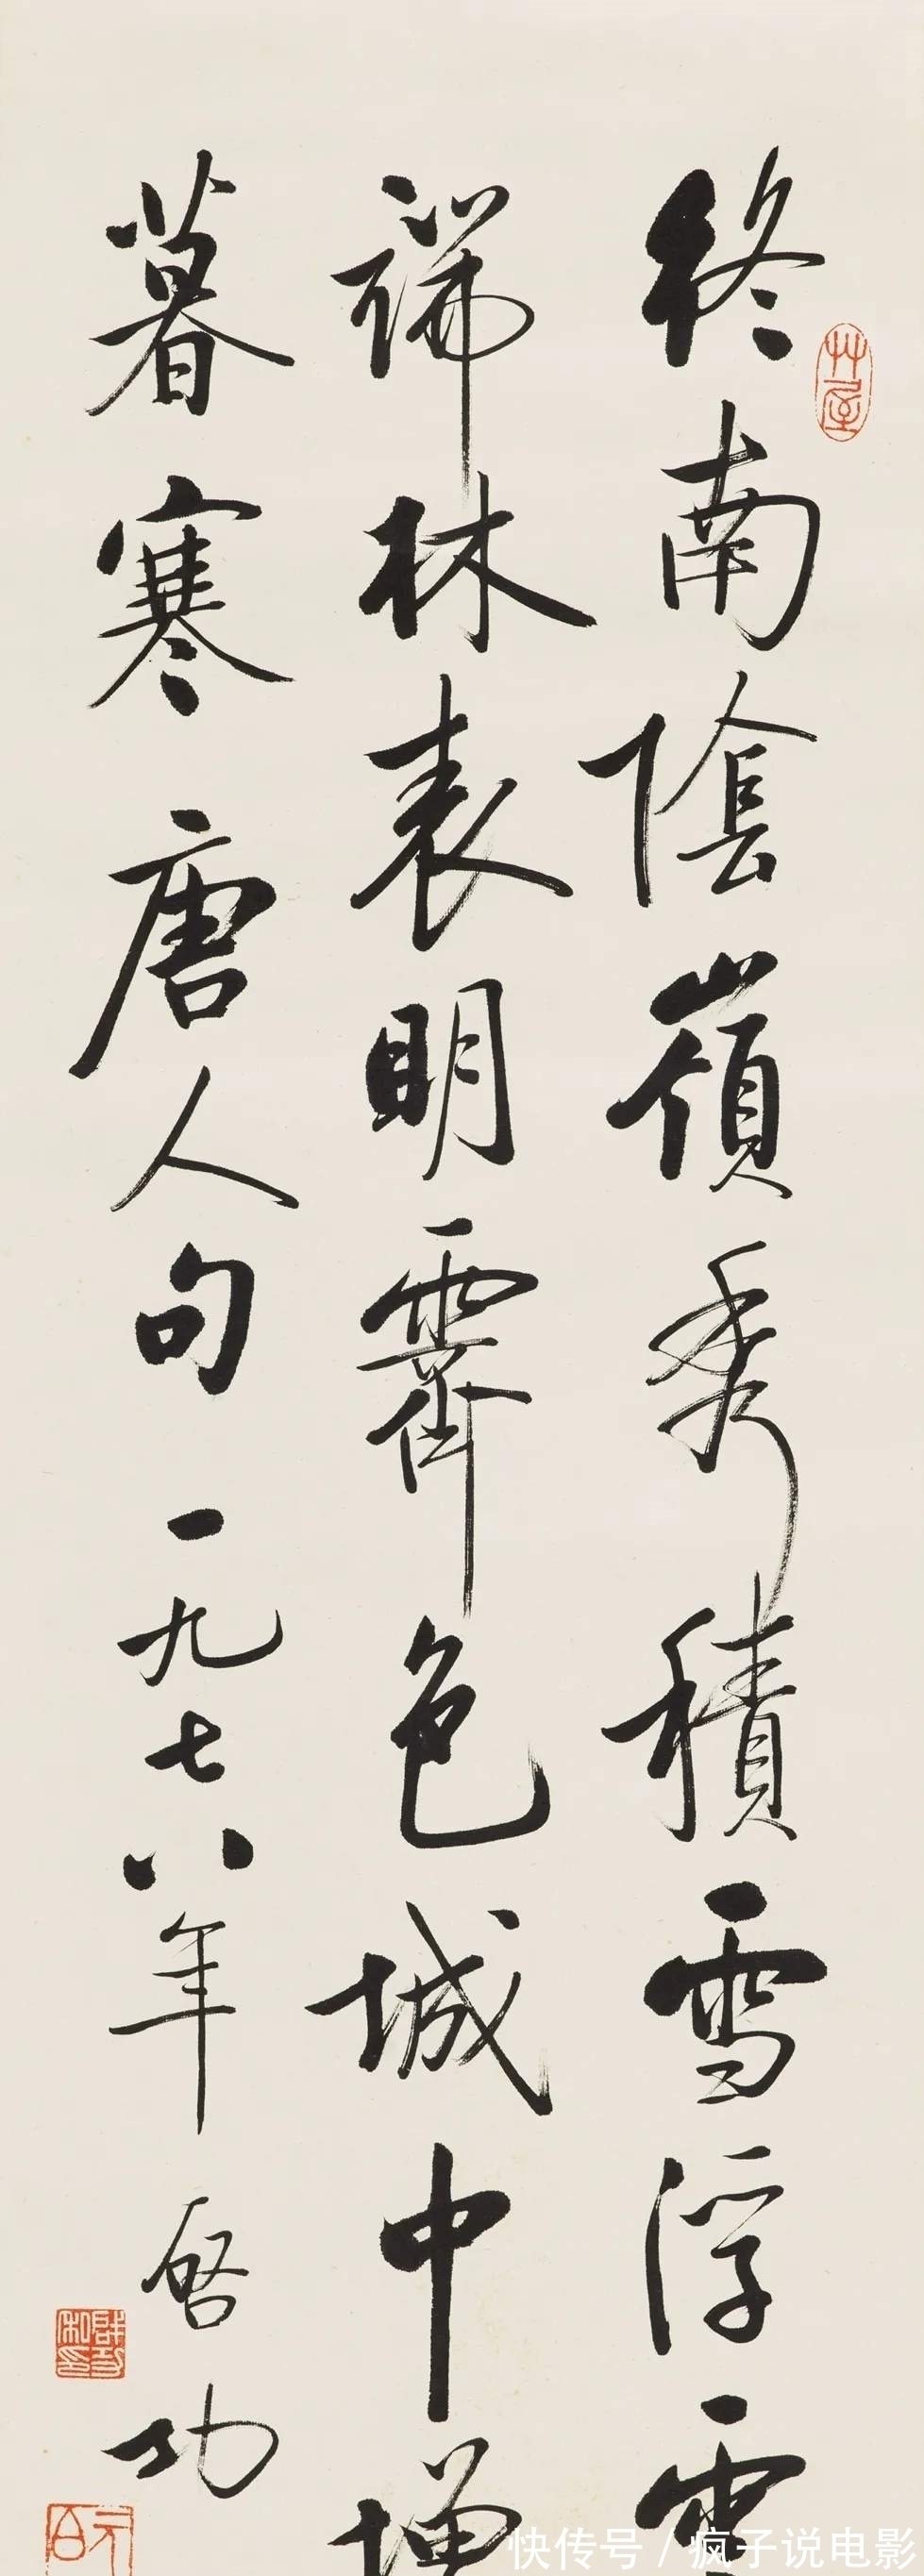 終南陰嶺秀積雪浮雲
端林表明霽色城中增
暮寒唐人句一九七八年啓功
艸屋
快传号/疯子说电影